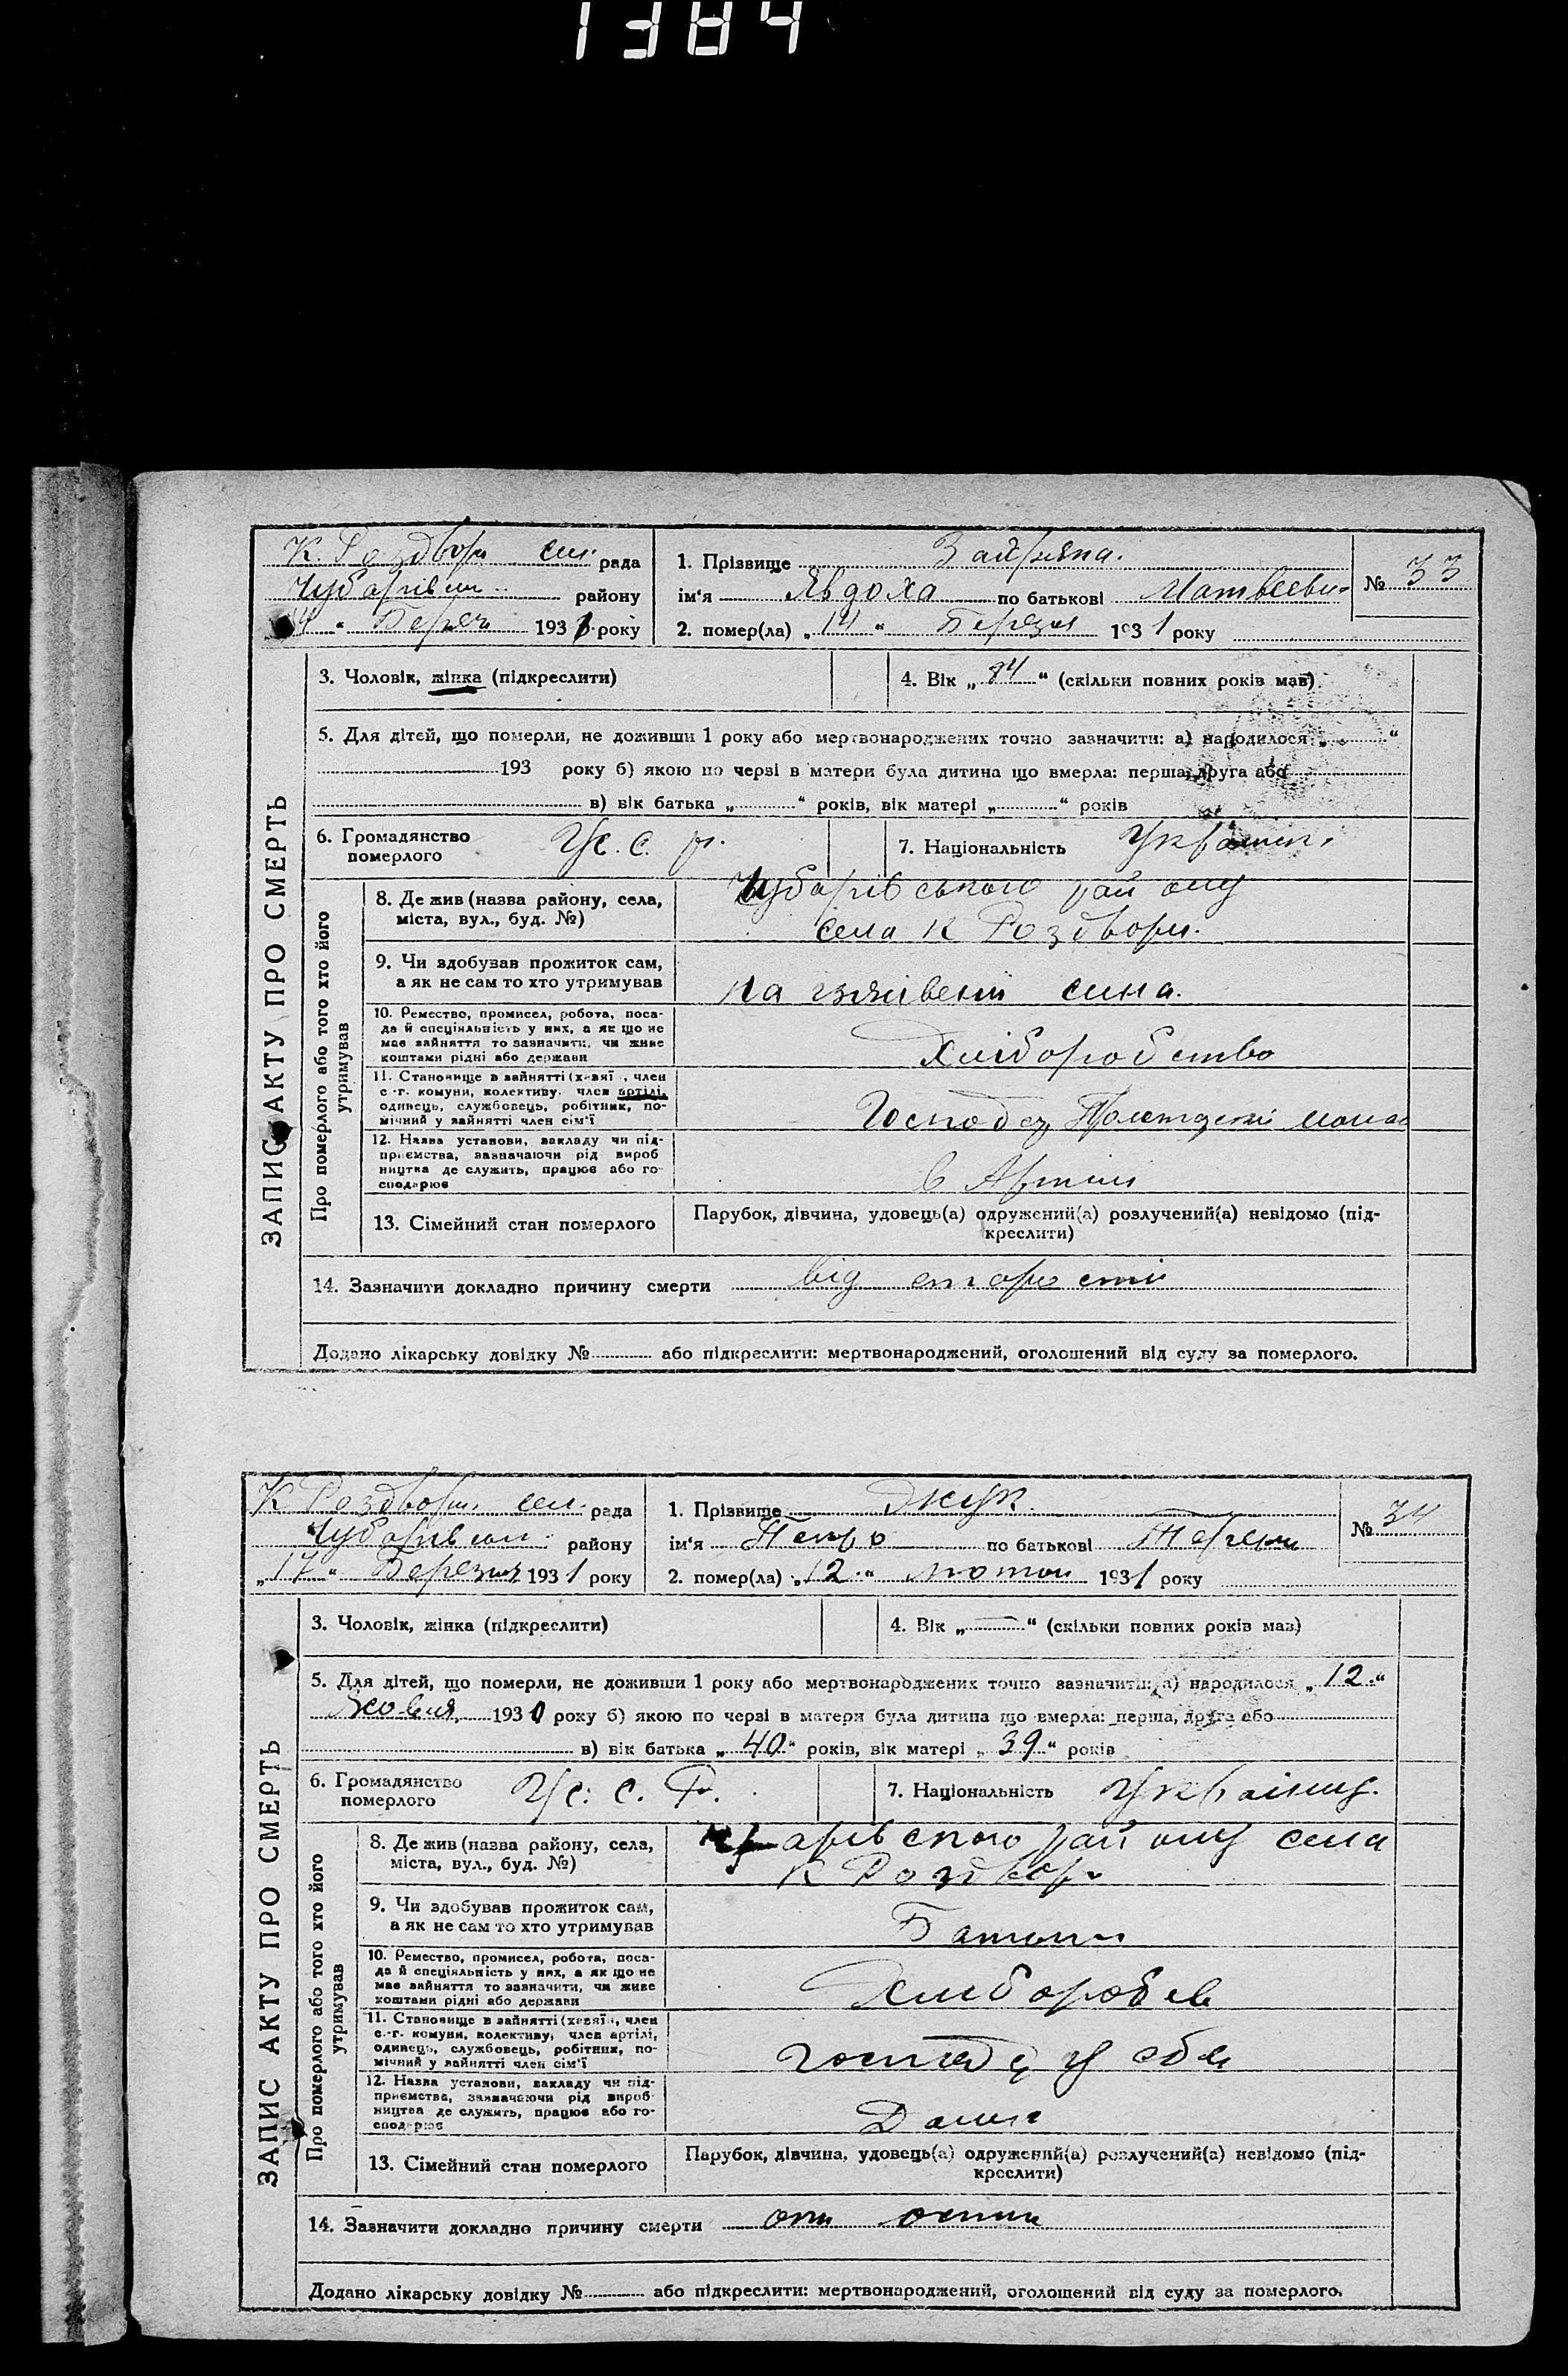 1384
К. Роздори сіл. рада
Чубарівськ. району
14 " Берез 1931 року
1. Прізвище
ім'я Явдоха по батькові Матвеевн
№ 33
2. помер(ла) „ 14 " Березня 1931 року
ЗАПИС АКТУ ПРО СМЕРТЬ
3. Чоловік, жінка (підкреслити)
4. Вік „ 84 " (скільки повних років мав)
5. Для дітей, що померли, не доживши 1 року або мертвонароджених точно зазначити: а) народилося „ "
193 року б) якою по черзі в матери була дитина що вмерла: перша, друга або
в) вік батька „ " років, вік матері „ " років
6. Громадянство
померлого
Ус. С. р.
7. Національність Україн.
Про померлого або того хто його
утримував
8. Де жив (назва району, села,
міста, вул., буд. №)
Чубарівського району
села К Роздори.
9. Чи здобував прожиток сам,
а як не сам то хто утримував
на сина.
10. Ремество, промисел, робота, поса-
да й спеціяльність у них, а як що не
має зайняття то зазначити, чи живе
коштами рідні або держави
Хліборобство
11. Становище в зайнятті (хазяї, член
с.-г. комуни, колективу, член артілі,
одинець, службовець, робітник, по-
мічний у зайнятті член сім'ї
12. Назва установи, закладу чи під-
приємства, зазначаючи рід вироб
ництва де служить, працює або го-
сподарює
в Артіли
13. Сімейний стан померлого
Парубок, дівчина, удовець(а) одружений(а) розлучений(а) невідомо (під-
креслити)
14. Зазначити докладно причину смерти від старости
Додано лікарську довідку № або підкреслити: мертвонароджений, оголошений від суду за померлого.
К Роздори сел. рада
Чубарівськ. району
„ 17 " Березня 1931 року
1. Прізвище Жук.
ім'я Петро по батькові
№ 34
2. помер(ла) „ 12 " лютого 1931 року
ЗАПИС АКТУ ПРО СМЕРТЬ
3. Чоловік, жінка (підкреслити)
4. Вік „ — " (скільки повних років мав)
5. Для дітей, що померли, не доживши 1 року або мертвонароджених точно зазначити: а) народилося „ 12. "
Жовтня 1930 року б) якою по черзі в матери була дитина що вмерла: перша, друга або
в) вік батька „ 40 " років, вік матері „ 39 " років
6. Громадянство
померлого
Ус. С. Р.
7. Національність Українц.
Про померлого або того хто його
утримував
8. Де жив (назва району, села,
міста, вул., буд. №)
району села
К Роздори
9. Чи здобував прожиток сам,
а як не сам то хто утримував
Батько
10. Ремество, промисел, робота, поса-
да й спеціяльність у них, а як що не
має зайняття то зазначити, чи живе
коштами рідні або держави
Хлибороб
11. Становище в зайнятті (хазяї, член
с.-г. комуни, колективу, член артілі,
одинець, службовець, робітник, по-
мічний у зайнятті член сім'ї
12. Назва установи, закладу чи під-
приємства, зазначаючи рід вироб
ництва де служить, працює або го-
сподарює
Дома
13. Сімейний стан померлого
Парубок, дівчина, удовець(а) одружений(а) розлучений(а) невідомо (під-
креслити)
14. Зазначити докладно причину смерти оти оспи
Додано лікарську довідку № або підкреслити: мертвонароджений, оголошений від суду за померлого.